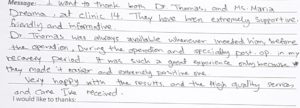 Message: I want to thank both Dr Thomas, and Ms. Maria
Dreama, at clinic 14. They have been extremely supportive,
friendly and informative
Dr Thomas was always available whenever needed him, before
the operation, During the operation and specially post op in my
recovery period. It was such a great experience only because
they made it easier and extremely positive one
Very happy with the results, and the high quality service,
and care I've received.
I would like to thanks: